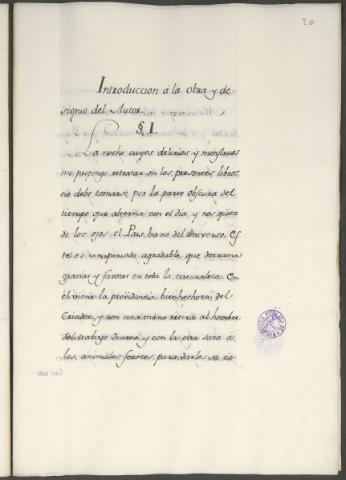 20
Introduccion á la obra y de
signio del Autor.
§. I.
La noche cuyos delirios y monstruos
me propongo retratar en los presentes libros,
no debe tomarse por la parte obscura del
tiempo que alterna con el dia, y nos quita
de los ojos el Pais bano del Universo. Es
te es un periodo agradable que derrama
gracias y favores en toda la naturaleza. En
el viene la providencia bienhechora del
Criador, y con una mano retira al hombre
del trabajo diurno y con la otra saca á
los animales feroces para darles su co